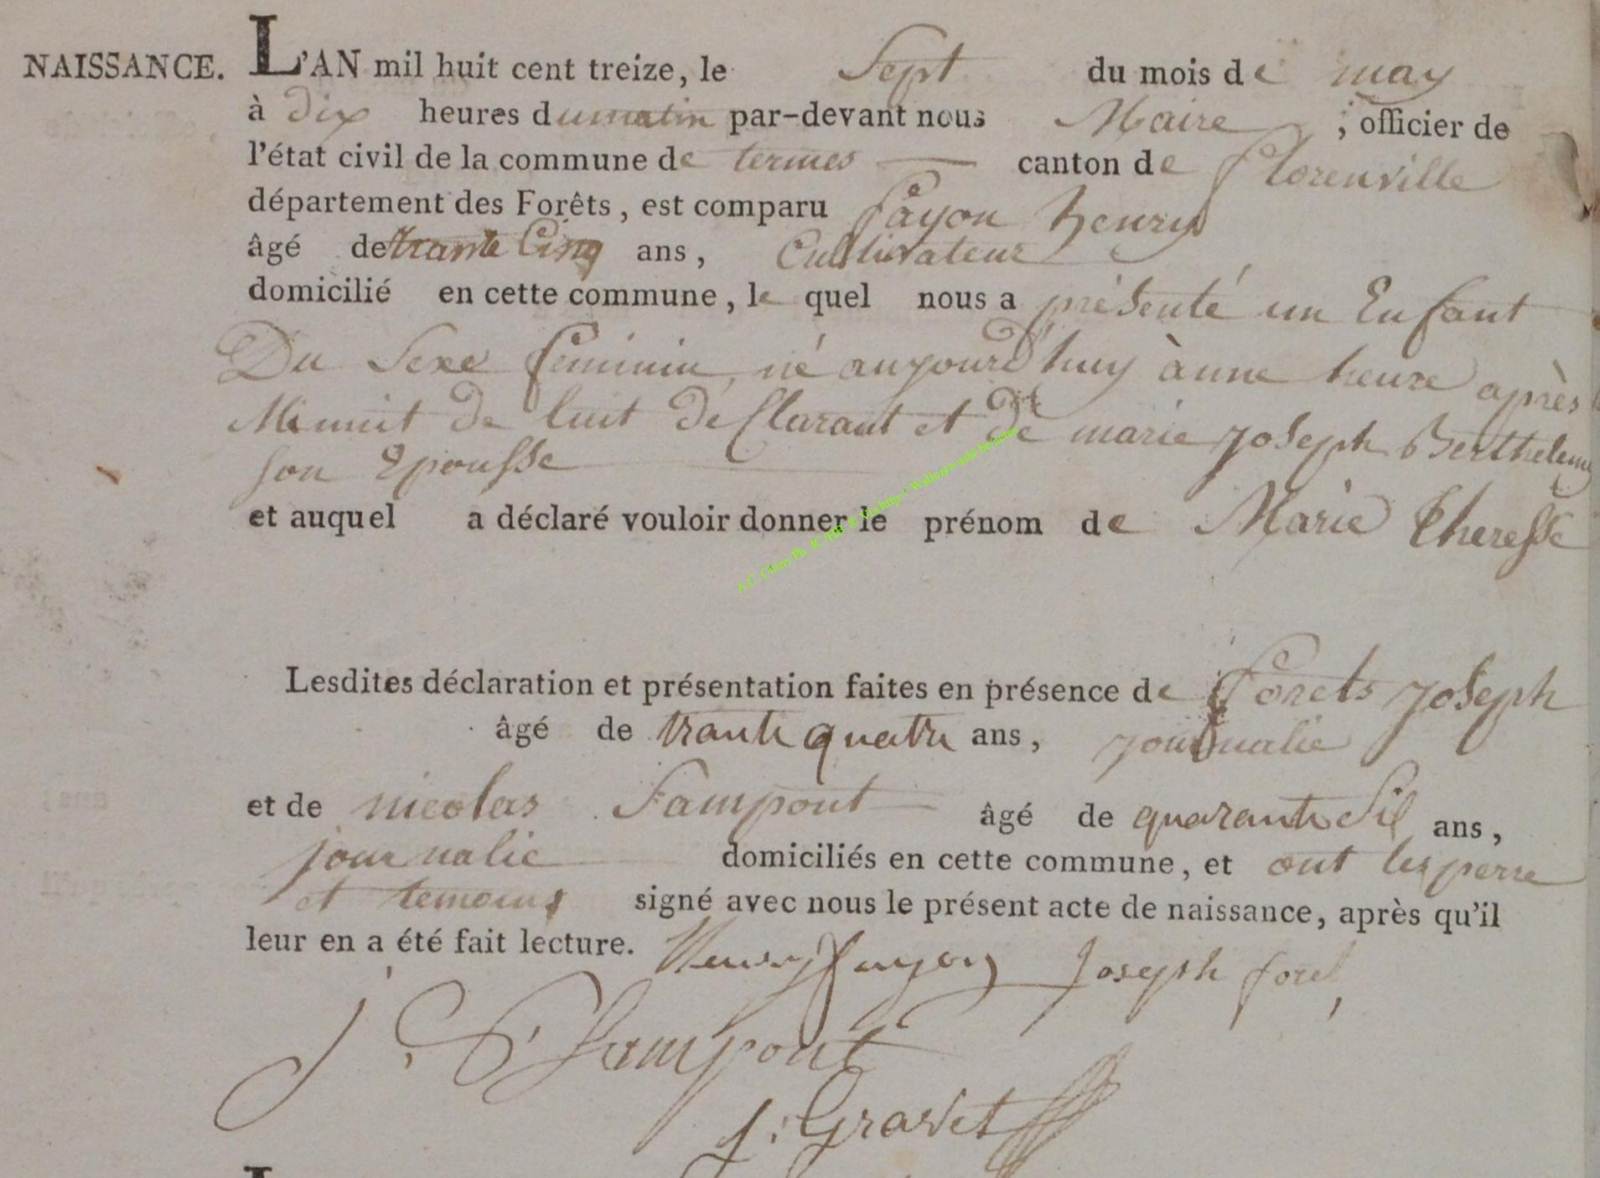 NAISSANCE. L'AN mil huit cent treize, le Sept du mois de may
à dix heures du matin par-devant nous Maire, officier de
l'état civil de la commune de termes canton de Florenville
département des Forêts, est comparu fayon henry
âgé de trante Cinq ans, Cultivateur
domicilié en cette commune, le quel nous a présenté un Enfant
Du Sexe feminin, né aujourd'huy à une heure après
Minuit de luit declarant et de marie joseph Berthelemy
son Epousse
et auquel a déclaré vouloir donner le prénom de Marie theresse
Lesdites déclaration et présentation faites en présence de forets joseph
âgé de trante quatre ans, journalie
et de nicolas Fampont âgé de quarante Sil ans,
journalie domiciliés en cette commune, et ont les perre
et temoins signé avec nous le présent acte de naissance, après qu'il
leur en a été fait lecture. Henry fayon Joseph foret
fampont
j: Gravet